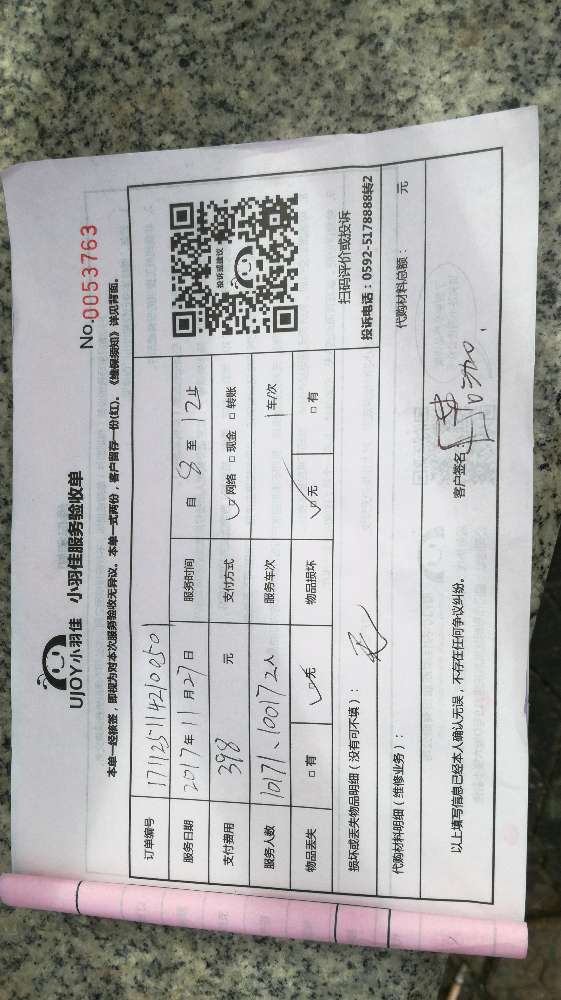 UJOY小羽佳 小羽佳服务验收单
No.0053763
本单一经核签，即视为对本次服务验收无异议。本单一式两份，客户留存一份(红)。《维保须知》详见背面。
订单编号 171125114210050
服务日期 2017年11月27日 服务时间 自 8 至 12止
支付费用 398 元 支付方式 ☑网络 □现金 □转账
服务人数 10171、10017 2人 服务车次 1车/次
物品丢失 □有 ☑无 物品损坏 ☑无 □有
投诉或建议
扫码评价或投诉
投诉电话：0592-5178888转2
损坏或丢失物品明细（没有可不填）： 无
代购材料明细（维修业务）： 代购材料总额： 元
以上填写信息已经本人确认无误，不存在任何争议纠纷。 客户签名